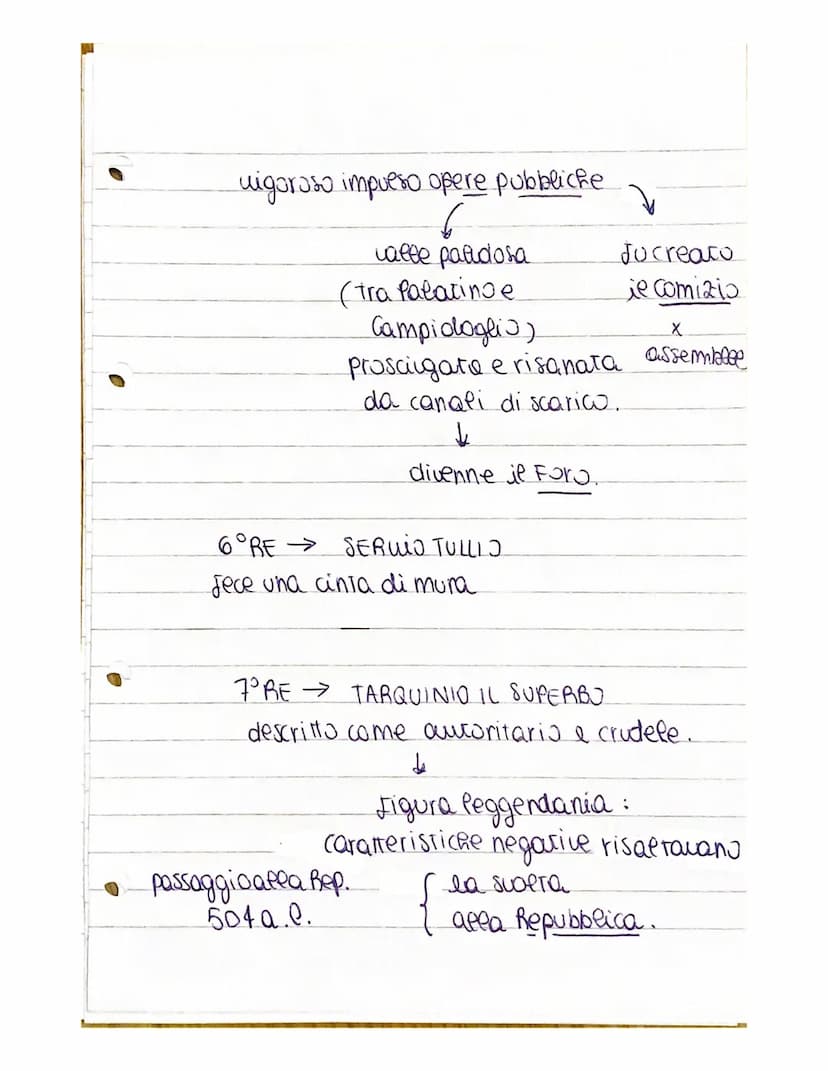 vigoroso impulso opere pubbliche
↙ ↘
valle paludosa fu creato
(tra Palatino e il Comizio
Campidoglio) x
prosciugata e risanata assemblee
da canali di scarico.
↓
divenne il Foro.
6° RE → SERVIO TULLIO
fece una cinta di mura
7° RE → TARQUINIO IL SUPERBO
descritto come autoritario e crudele.
↓
figura leggendaria :
caratteristiche negative risaltavano
passaggio alla Rep. { la svolta
504 a.C. alla Repubblica.